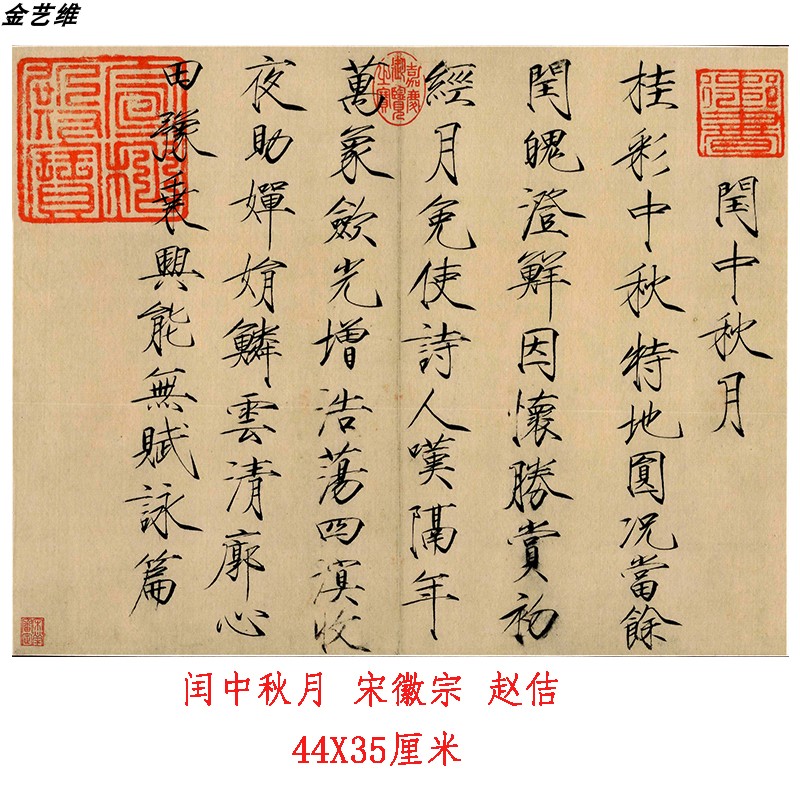 金艺维
御書
閏中秋月
桂彩中秋特地圓況當餘
閏魄澄鮮因懷勝賞初
經月免使詩人嘆隔年
嘉慶御覽之寶
萬象歛光增浩蕩四溟收
夜助嬋娟鱗雲清廓心
田豫乘興能無賦詠篇
闰中秋月 宋徽宗 赵佶
44X35厘米